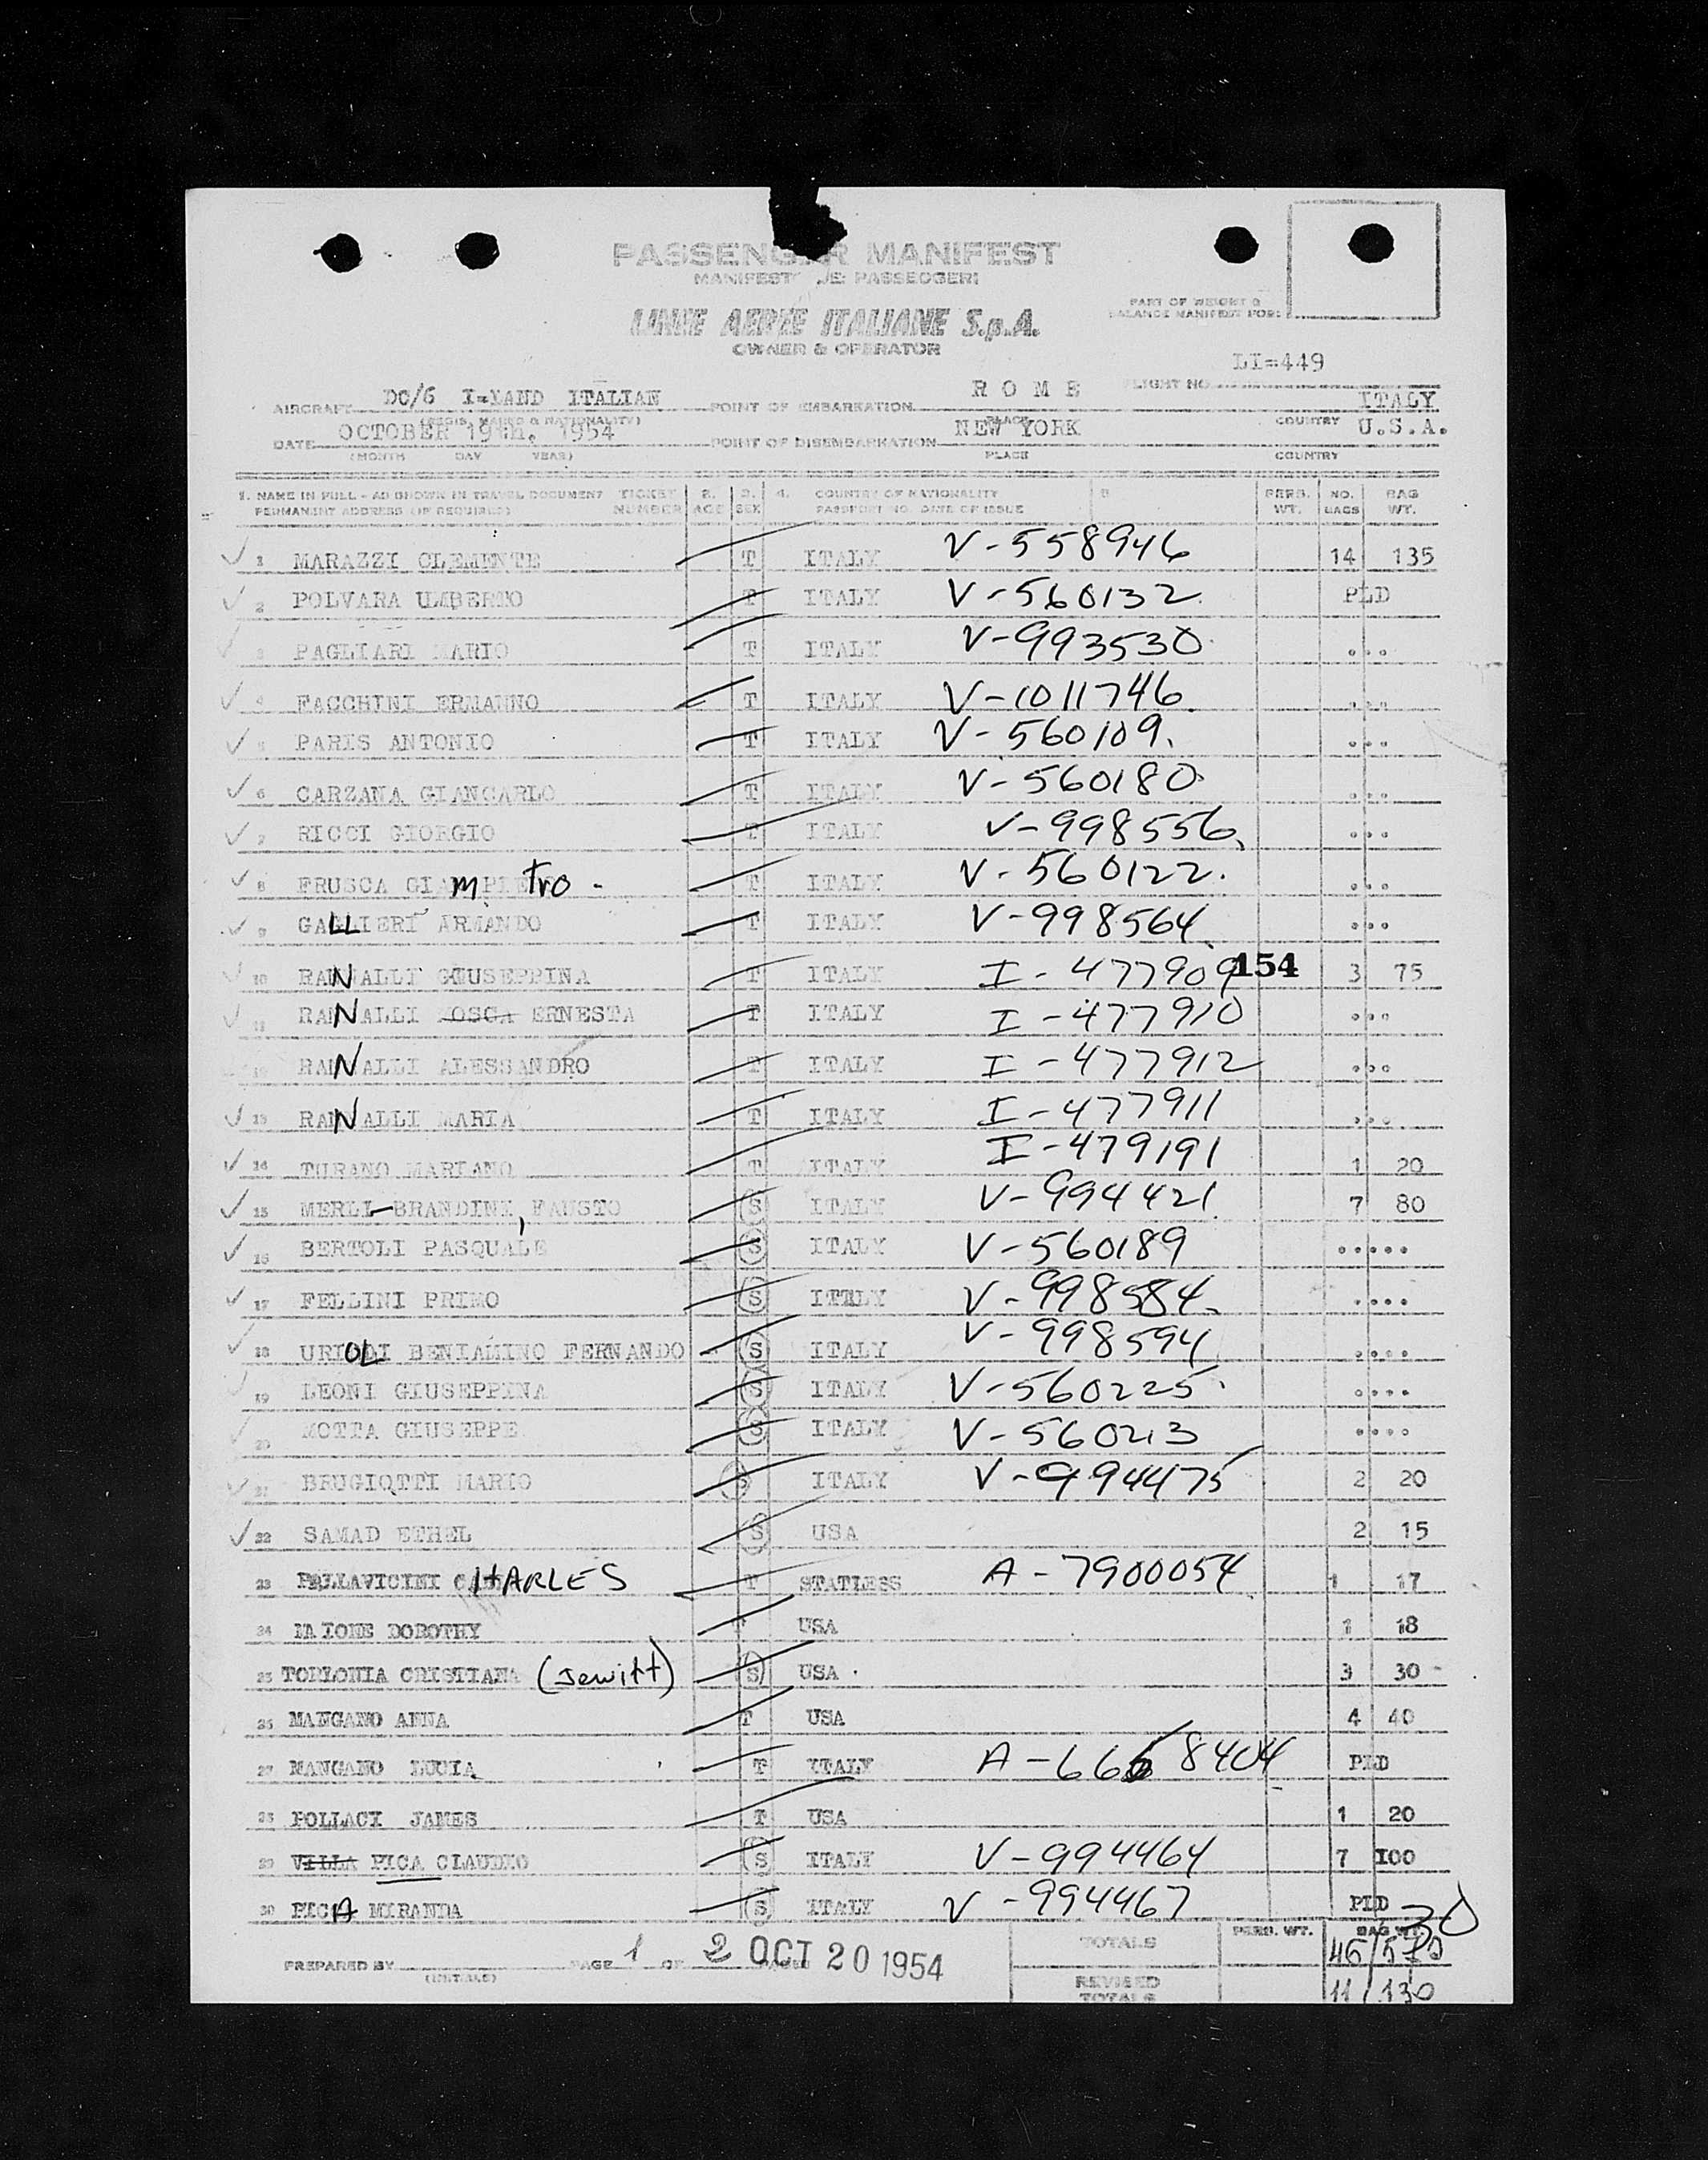 PASSENGER MANIFEST
MANIFEST PASSEGGERI
LINEE AEREE ITALIANE S.p.A.
OWNER & OPERATOR
PART OF WEIGHT &
BALANCE MANIFEST FOR:
LI=449
FLIGHT NO.
AIRCRAFT DC/6 I=LAND ITALIAN POINT OF EMBARKATION R O M E ITALY
(REGIS. MARKS & NATIONALITY) PLACE COUNTRY
DATE OCTOBER 19th, 1954 POINT OF DISEMBARKATION NEW YORK U.S.A.
(MONTH DAY YEAR) PLACE COUNTRY
1. NAME IN FULL - AS SHOWN IN TRAVEL DOCUMENT TICKET 2. 3. 4. COUNTRY OF NATIONALITY 5 PERS. NO. BAG
PERMANENT ADDRESS (IF REQUIRED) NUMBER AGE SEX PASSPORT NO. DATE OF ISSUE WT. BAGS WT.
1 MARAZZI CLEMENTE T ITALY V-558946 14 135
2 POLVARA UMBERTO T ITALY V-560132 PLD
3 PAGLIARI MARIO T ITALY V-993530 ...
4 FACCHINI ERMANNO T ITALY V-1011746 ...
5 PARIS ANTONIO T ITALY V-560109. ...
6 CARZANA GIANCARLO T ITALY V-560180 ...
7 RICCI GIORGIO T ITALY V-998556 ...
8 FRUSCA GIAMPIETRO - T ITALY V-560122. ...
9 GALLIERI ARMANDO T ITALY V-998564 ...
10 RANNALLI GIUSEPPINA T ITALY I-477909 154 3 75
11 RANNALLI LOSCA ERNESTA T ITALY I-477910 ...
12 RANNALLI ALESSANDRO T ITALY I-477912 ...
13 RANNALLI MARIA T ITALY I-477911 ...
14 TURANO MARIANO T ITALY I-479191 1 20
15 MERLI-BRANDINI, FAUSTO S ITALY V-994421 7 80
16 BERTOLI PASQUALE S ITALY V-560189 .....
17 FELLINI PRIMO S ITALY V-998584 ....
18 URIOLI BENIAMINO FERNANDO S ITALY V-998594 ....
19 LEONI GIUSEPPINA S ITALY V-560225 ....
20 MOTTA GIUSEPPE S ITALY V-560213 ....
21 BRUGIOTTI MARIO S ITALY V-994475 2 20
22 SAMAD ETHEL S USA 2 15
23 PALLAVICINI CHARLES T STATLESS A-7900054 1 17
24 MAIONE DOROTHY T USA 1 18
25 TORLONIA CRISTIANA (Jewitt) S USA 3 30
26 MANGANO ANNA T USA 4 40
27 MANGANO LUCIA T ITALY A-6668404 PLD
28 POLLACI JAMES T USA 1 20
29 VILLA PICA CLAUDIO S ITALY V-994464 7 100
30 PICA MIRANDA S ITALY V-994467 PLD
30
TOTALS PERS. WT. BAG WT.
46/570
PREPARED BY (INITIALS) PAGE 1 OF 2 PAGES OCT 20 1954
REVISED TOTALS 11/130